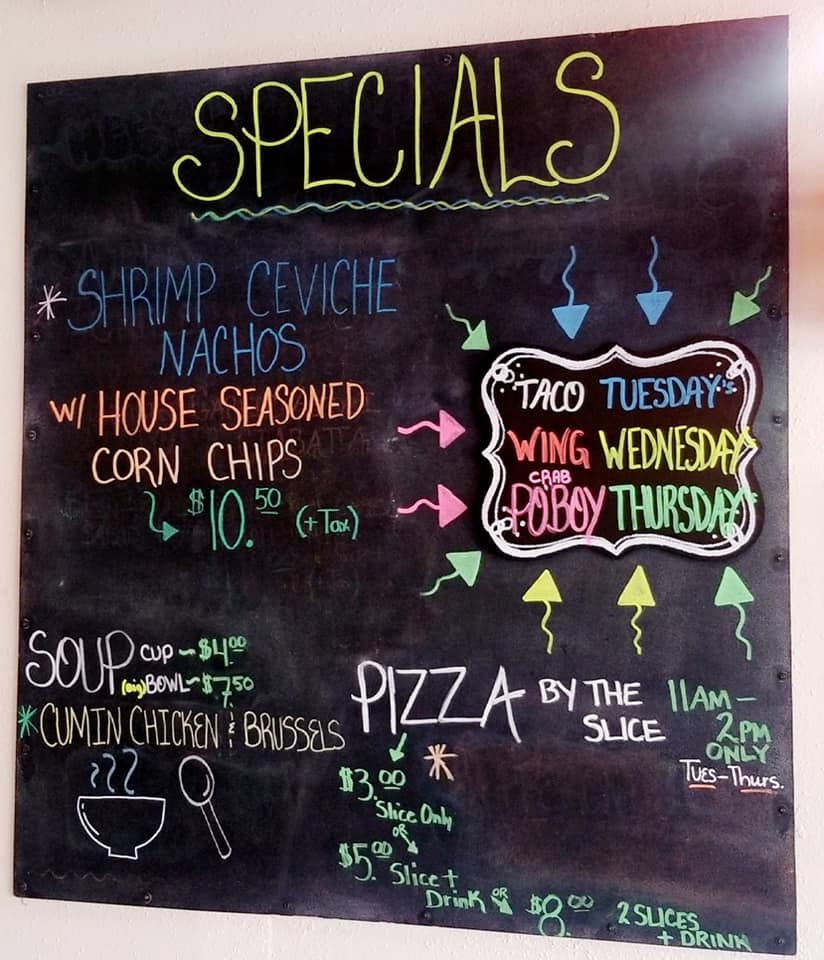 SPECIALS
* SHRIMP CEVICHE
NACHOS
W/ HOUSE SEASONED
CORN CHIPS
$10.50 (+Tax)
TACO TUESDAY's
WING WEDNESDAY
CRAB
PO'BOY THURSDAY's
SOUP CUP ~ $4.00
(Big) BOWL ~ $7.50
* CUMIN CHICKEN & BRUSSELS
PIZZA BY THE
SLICE
11AM -
2PM
ONLY
Tues-Thurs.
*
$3.00
Slice Only
OR
$5.00 Slice +
Drink OR $8.00 2 SLICES
+ DRINK